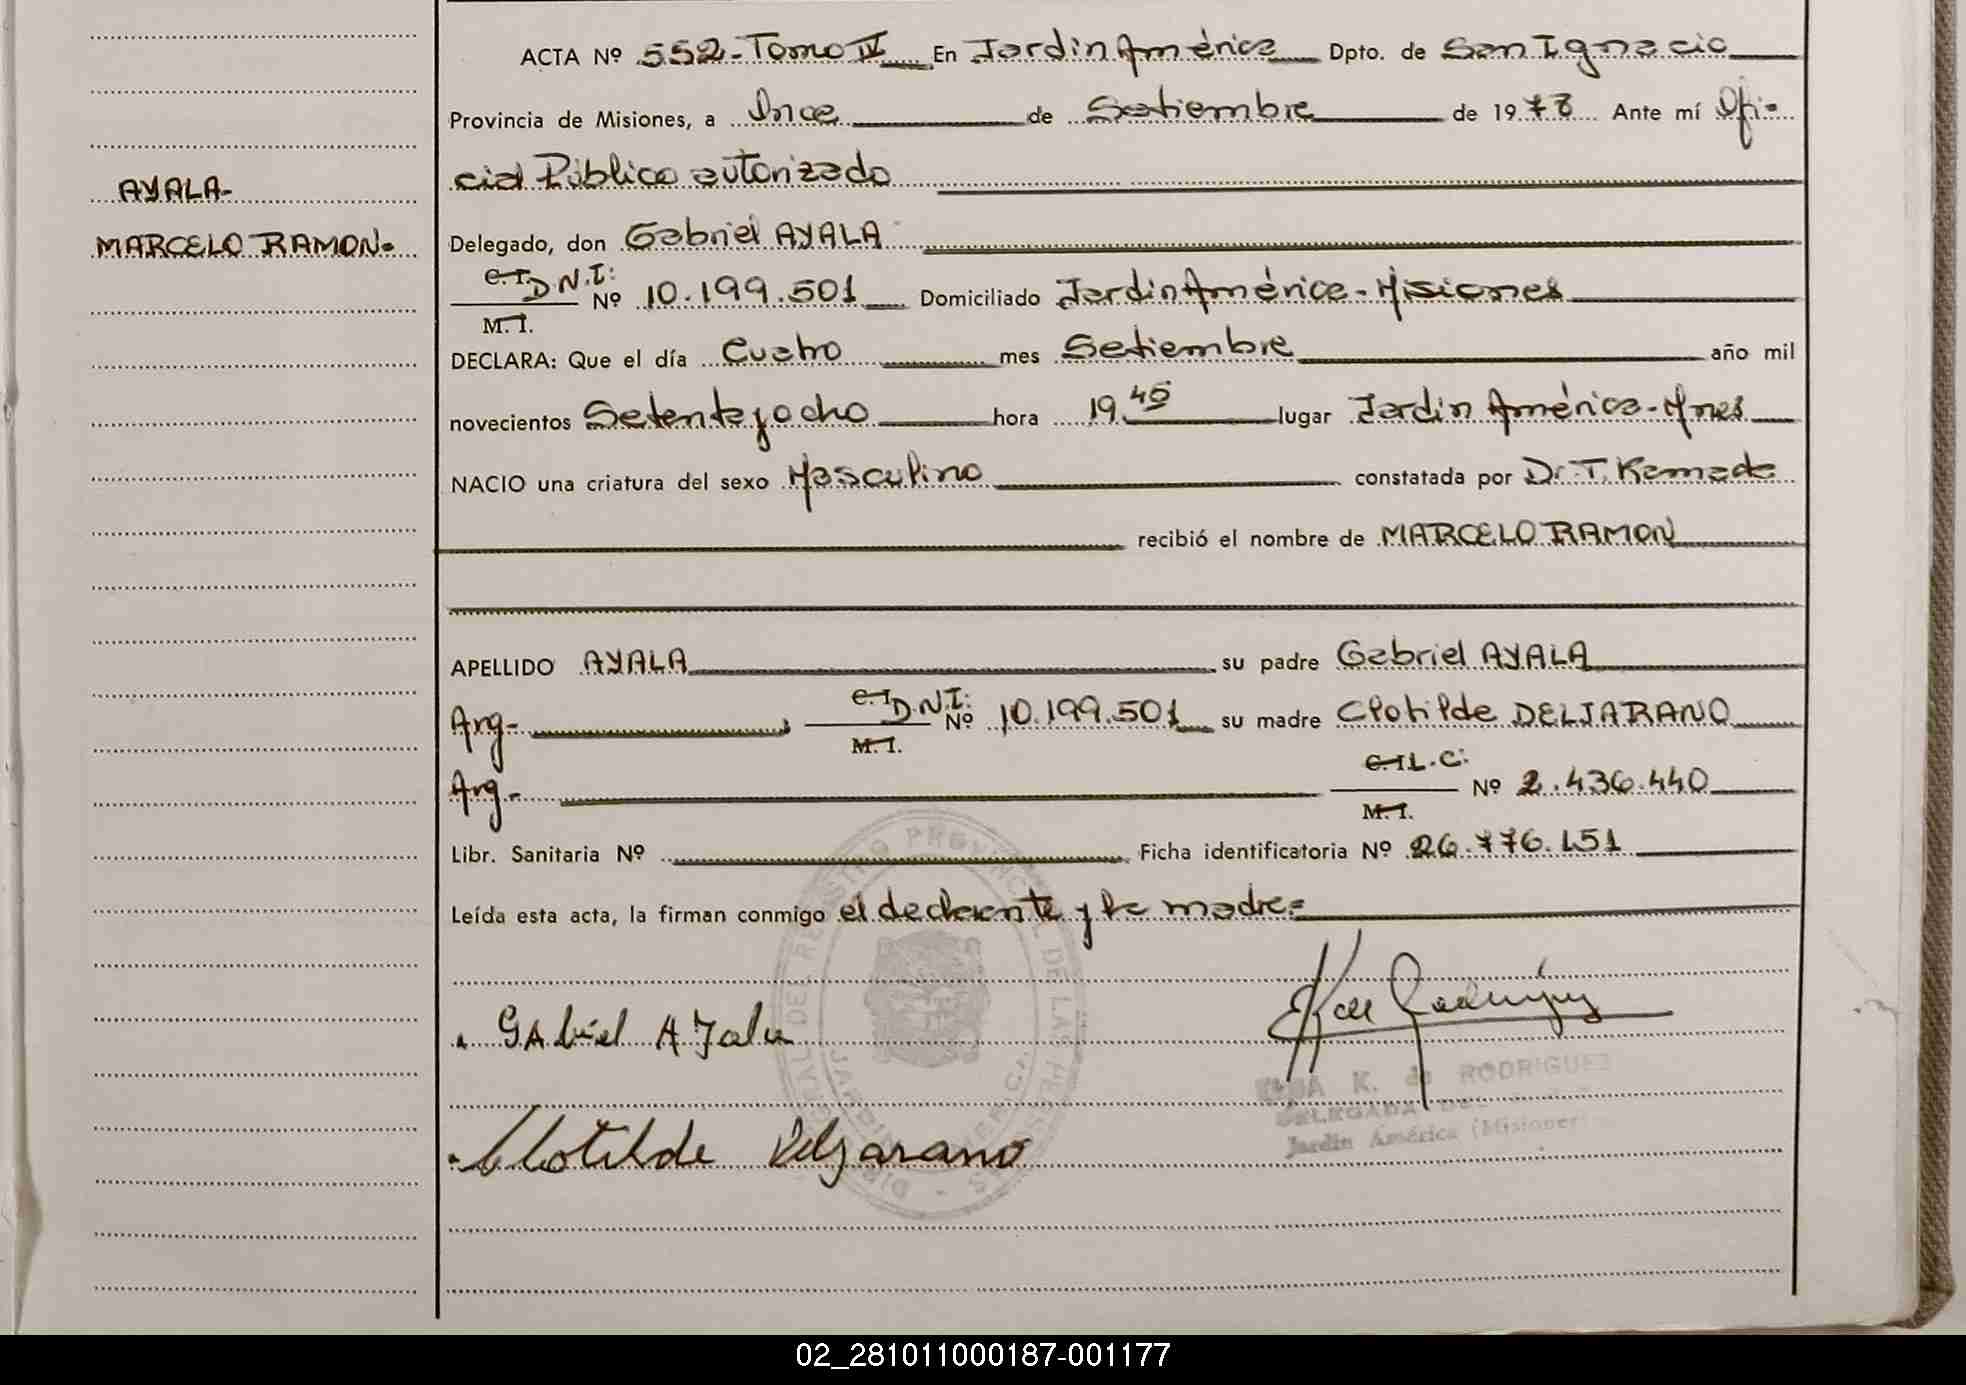 ACTA Nº 552-Tomo IV En Jardin América Dpto. de San Ignacio
Provincia de Misiones, a Once de Setiembre de 1978 Ante mí Ofi-
cial Público autorizado
AYALA-
MARCELO RAMON-
Delegado, don Gabriel AYALA
C.I. D.N.I:
M.I.
Nº 10.199.501 Domiciliado Jardin América-Misiones
DECLARA: Que el día Cuatro mes Setiembre año mil
novecientos Setenta y ocho hora 19.45 lugar Jardin América-Mnes.
NACIO una criatura del sexo Masculino constatada por Dr. T. Kamada
recibió el nombre de MARCELO RAMON
APELLIDO AYALA su padre Gabriel AYALA
Arg- C.I. D.N.I: M.I. Nº 10.199.501 su madre Clotilde DELJARANO
Arg- C.I. L.C: M.I. Nº 2.436.440
Libr. Sanitaria Nº Ficha identificatoria Nº 26.776.151
Leída esta acta, la firman conmigo el declarante y la madre=
Gabriel AYala
K. de RODRIGUEZ
DELEGADA
Jardín América (Misiones)
Clotilde Deljarano
DEL REGISTRO PROVINCIAL DE LAS PERSONAS
JARDIN AMERICA
02_281011000187-001177